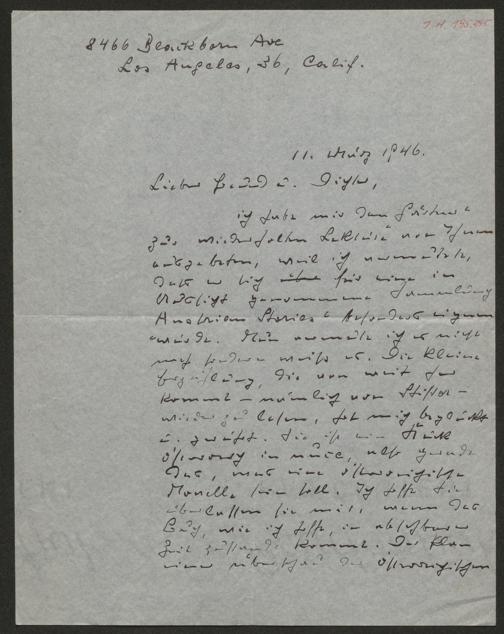 J.N. 195.
8466 Blackborn Ave
Los Angeles, 36, Calif.
11. März 1946.
Lieber Freund u. Dichter,
ich habe mir den Gärtner"
zur wiederholten Lektüre von Ihnen
ausgebeten, weil ich vermutete,
dass er sich für eine in
Aussicht genommene Sammlung
Austrian Stories" besonders eignen
würde. Nun vermute ich es nicht
mehr sondern weiss es. Die kleine
Erzählung, die von weit her
kommt – nämlich von Stifter –
wieder zu lesen, hat mich beglückt
u. Sie ist ein Stück
Österreich in nuce, also gerade
das, was eine österreichische
Novelle sein soll. Ich hoffe Sie
überlassen sie mir, wenn das
Buch, wie ich hoffe, in absehbarer
Zeit zustande kommt. Der Plan
einer Überschau der österreichischen